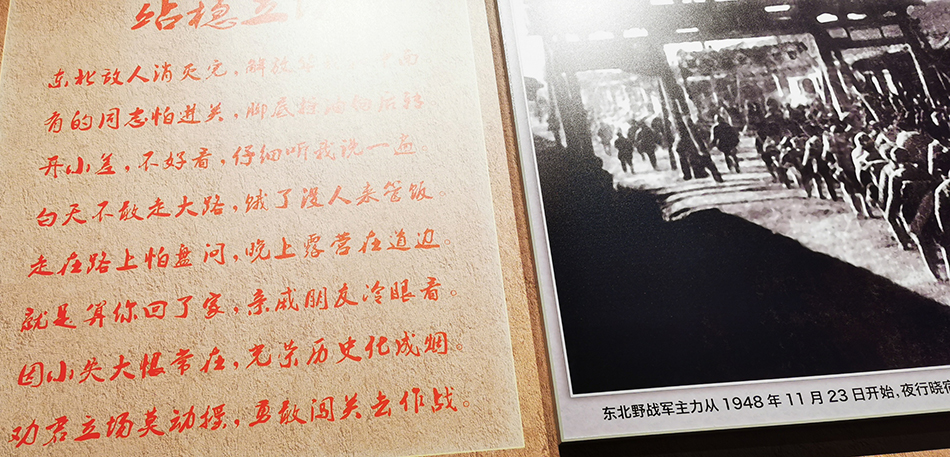 站稳立
东北敌人消灭完,解放 南
有的同志怕进关,脚底 油 后转
开小差,不好看,仔细听我说一遍。
白天不敢走大路,饿了没人来管饭。
走在路上怕盘问,晚上露营在道边。
就是算你回了家,亲戚朋友冷眼看。
因小失大恨常在,光荣历史化成烟。
劝君立场莫动摇,勇敢闯关去作战。
东北野战军主力从1948年11月23日开始,夜行晓宿